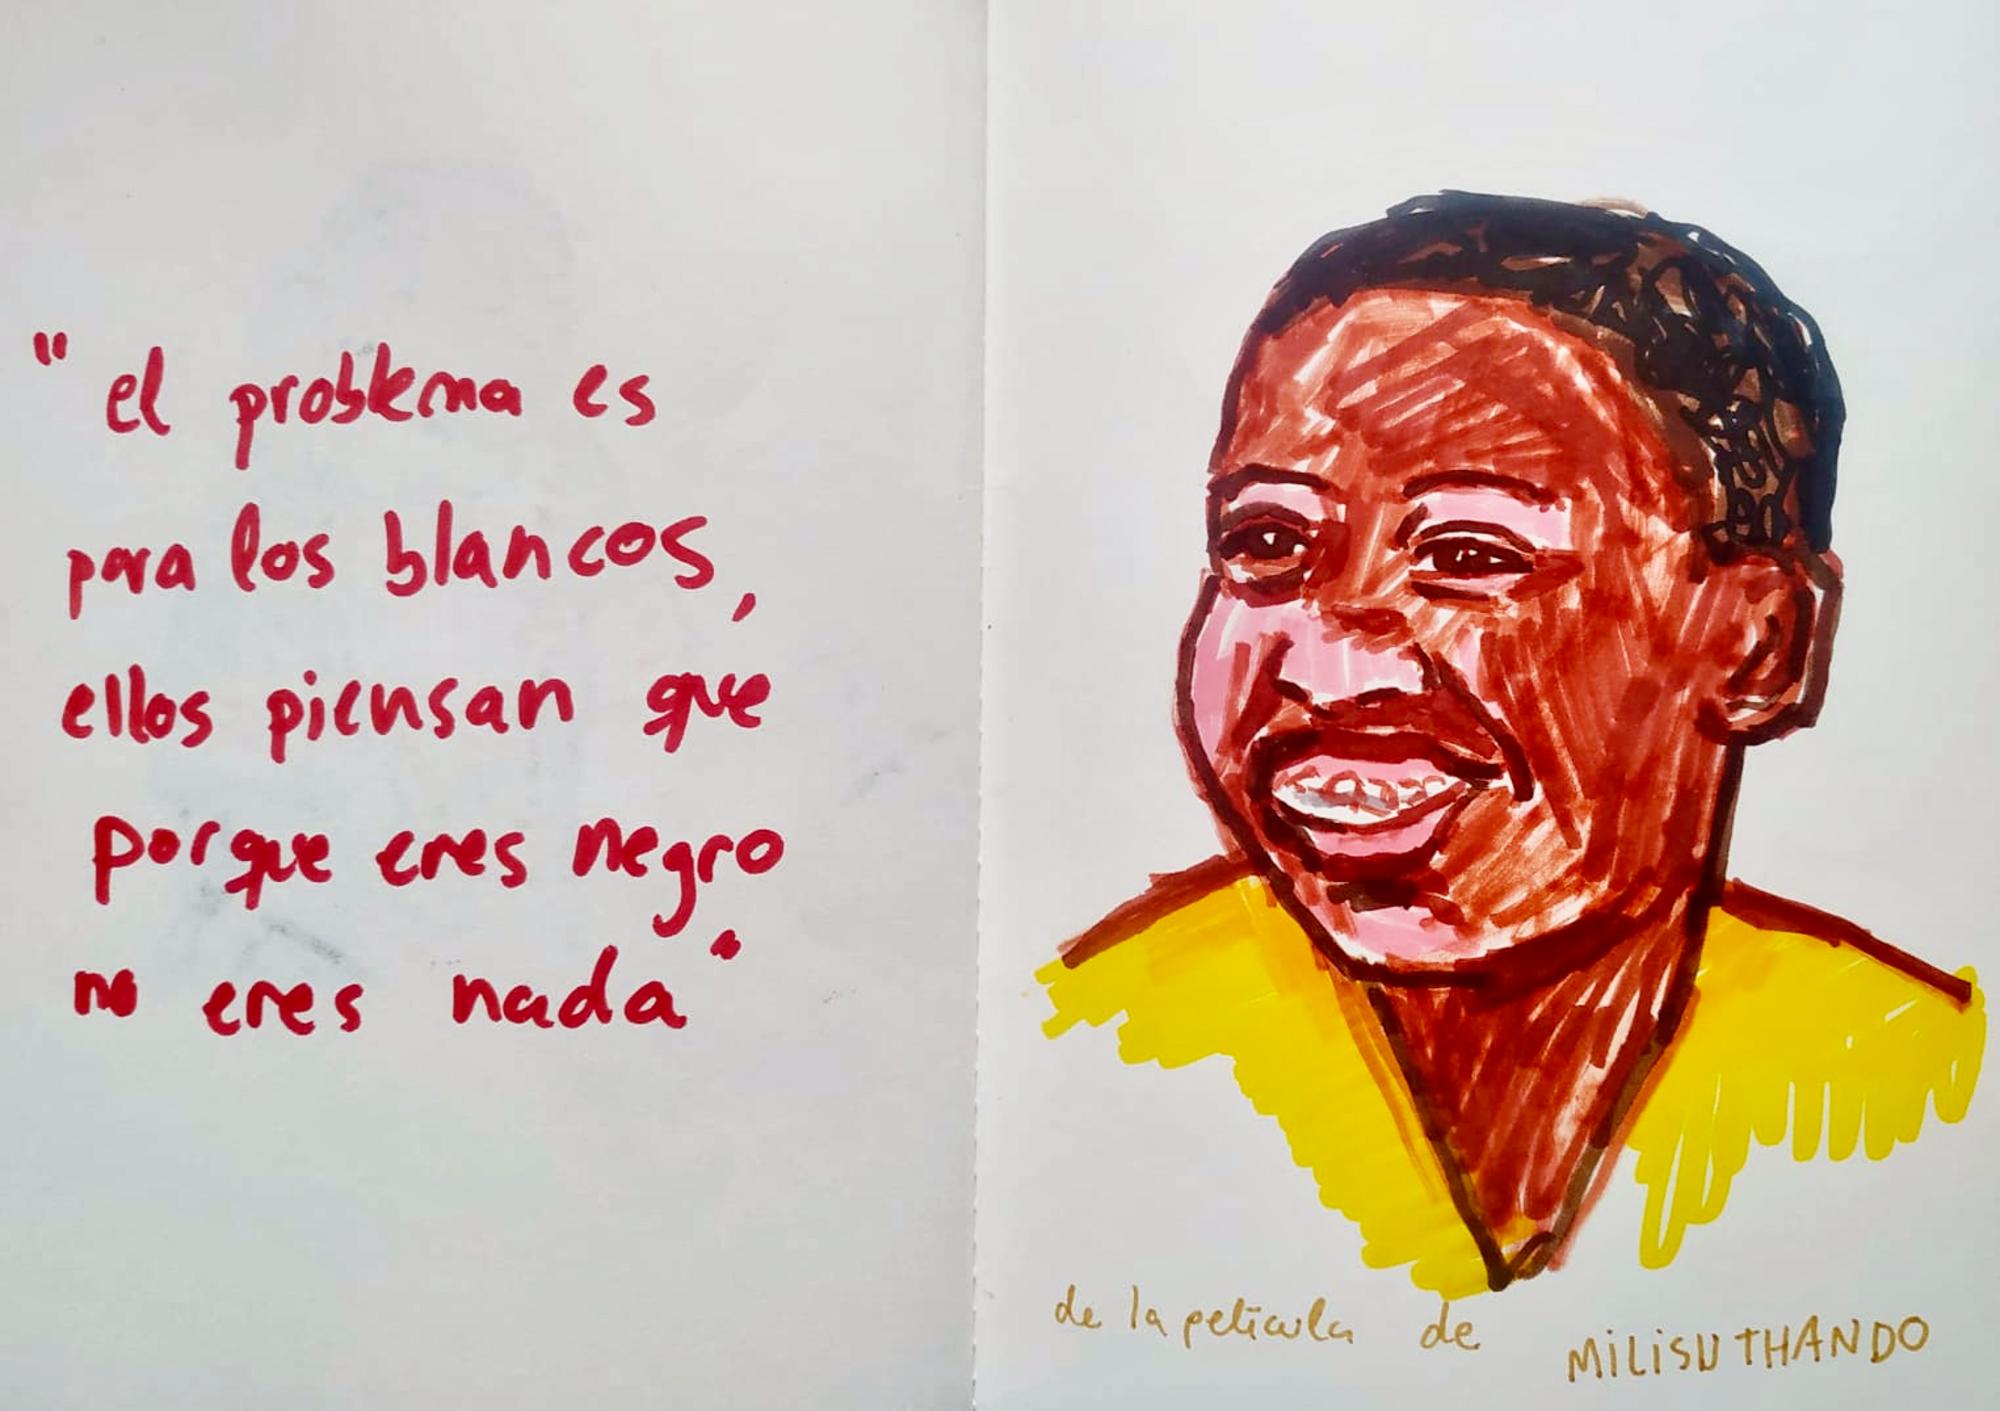 "el problema es
para los blancos,
ellos piensan que
porque eres negro
no eres nada"
de la película de MiLiSUTHANDO